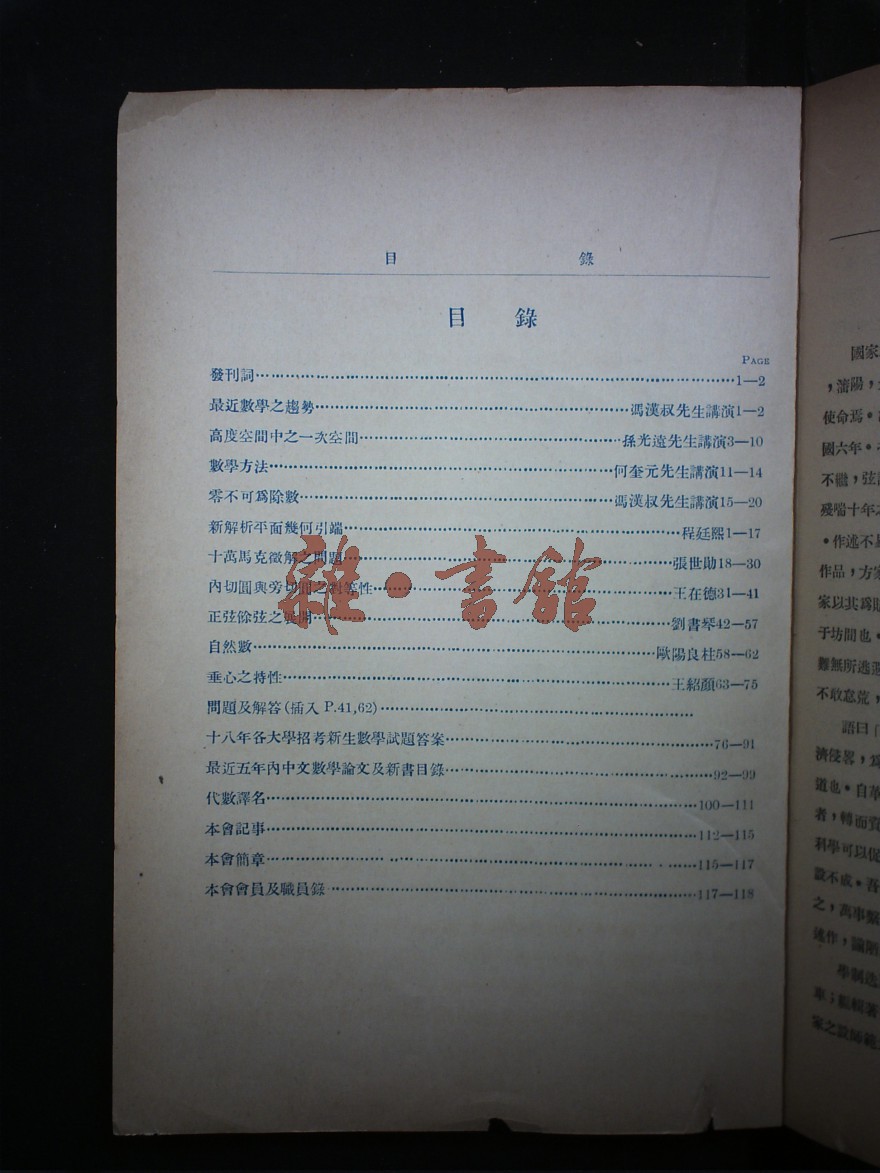 目 錄
目 錄
PAGE
發刊詞………1—2
最近數學之趨勢………馮漢叔先生講演1—2
高度空間中之一次空間………孫光遠先生講演3—10
數學方法………何奎元先生講演11—14
零不可爲除數………馮漢叔先生講演15—20
新解析平面幾何引端………程廷熙1—17
十萬馬克徵解之問題………張世勛18—30
內切圓與旁切圓之對等性………王在德31—41
正弦餘弦之展開………劉書琴42—57
自然數………歐陽良柱58—62
垂心之特性………王紹顏63—75
問題及解答(插入 P.41,62)………
十八年各大學招考新生數學試題答案………76—91
最近五年內中文數學論文及新書目錄………92—99
代數譯名………100—111
本會記事………112—115
本會簡章………115—117
本會會員及職員錄………117—118
雜·書館
國家
,瀋陽,
使命焉。
國六年。
不繼,弦
殘喘十年
。作述不易
作品,方家
家以其爲
于坊間也。
難無所逃
不敢怠荒,
語曰「
濟侵畧,爲
道也。自革
者,轉而買
科學可以促
設不成。吾
之,萬事
述作,論
學制迭
車;
家之設師範